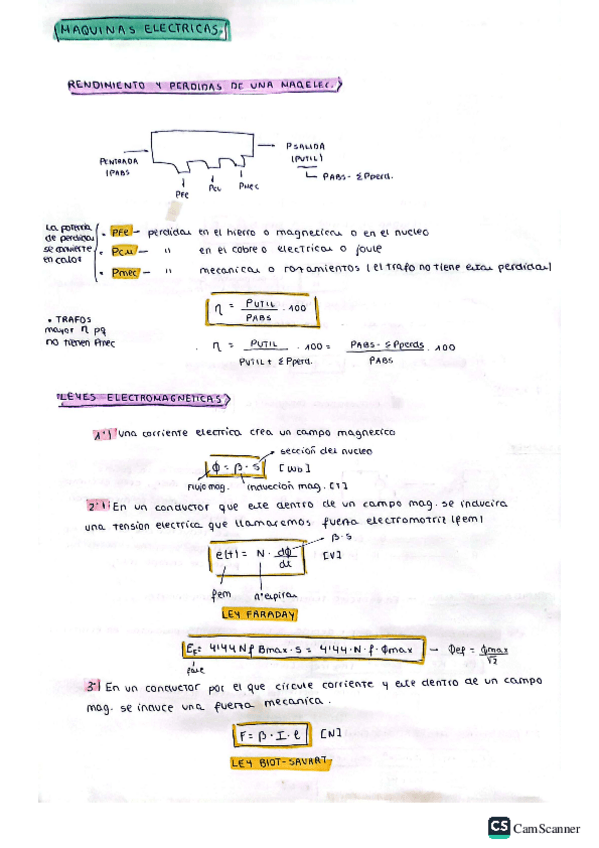 MAQUINAS ELECTRICAS.
RENDIMIENTO Y PERDIDAS DE UNA MAQ.ELEC.
PENTRADA
(PABS
PFe
Pcu
PMEC
PSALIDA
(PUTIL)
PABS - ΣPperd.
La potencia de perdidas se convierte en calor
• PFe - perdidas en el hierro o magneticas o en el nucleo
• Pcu - " en el cobre o electricas o joule
• Pmec - " mecanicas o rozamientos (el trafo no tiene estas perdidas)
η = PUTIL / PABS · 100
• TRAFOS
mayor η pq
no tienen Pmec
η = PUTIL / PUTIL + ΣPperd. · 100 = PABS - ΣPperds / PABS · 100
LEYES ELECTROMAGNETICAS
1º) Una corriente electrica crea un campo magnetico
sección del nucleo
ϕ = β · S [Wb]
flujo mag. induccion mag. [T]
2º) En un conductor que este dentro de un campo mag. se inducira
una tension electrica que llamaremos fuerza electromotriz (fem)
β · S
e(t) = N · dϕ / dt [V]
fem nº espiras
LEY FARADAY
EF = 4'44 N f Bmax · S = 4'44 · N · f · ϕmax - ϕef = ϕmax / √2
fase
3º) En un conductor por el que circule corriente y este dentro de un campo
mag. se induce una fuerza mecanica.
F = β · I · l [N]
LEY BIOT-SAVART
CS CamScanner